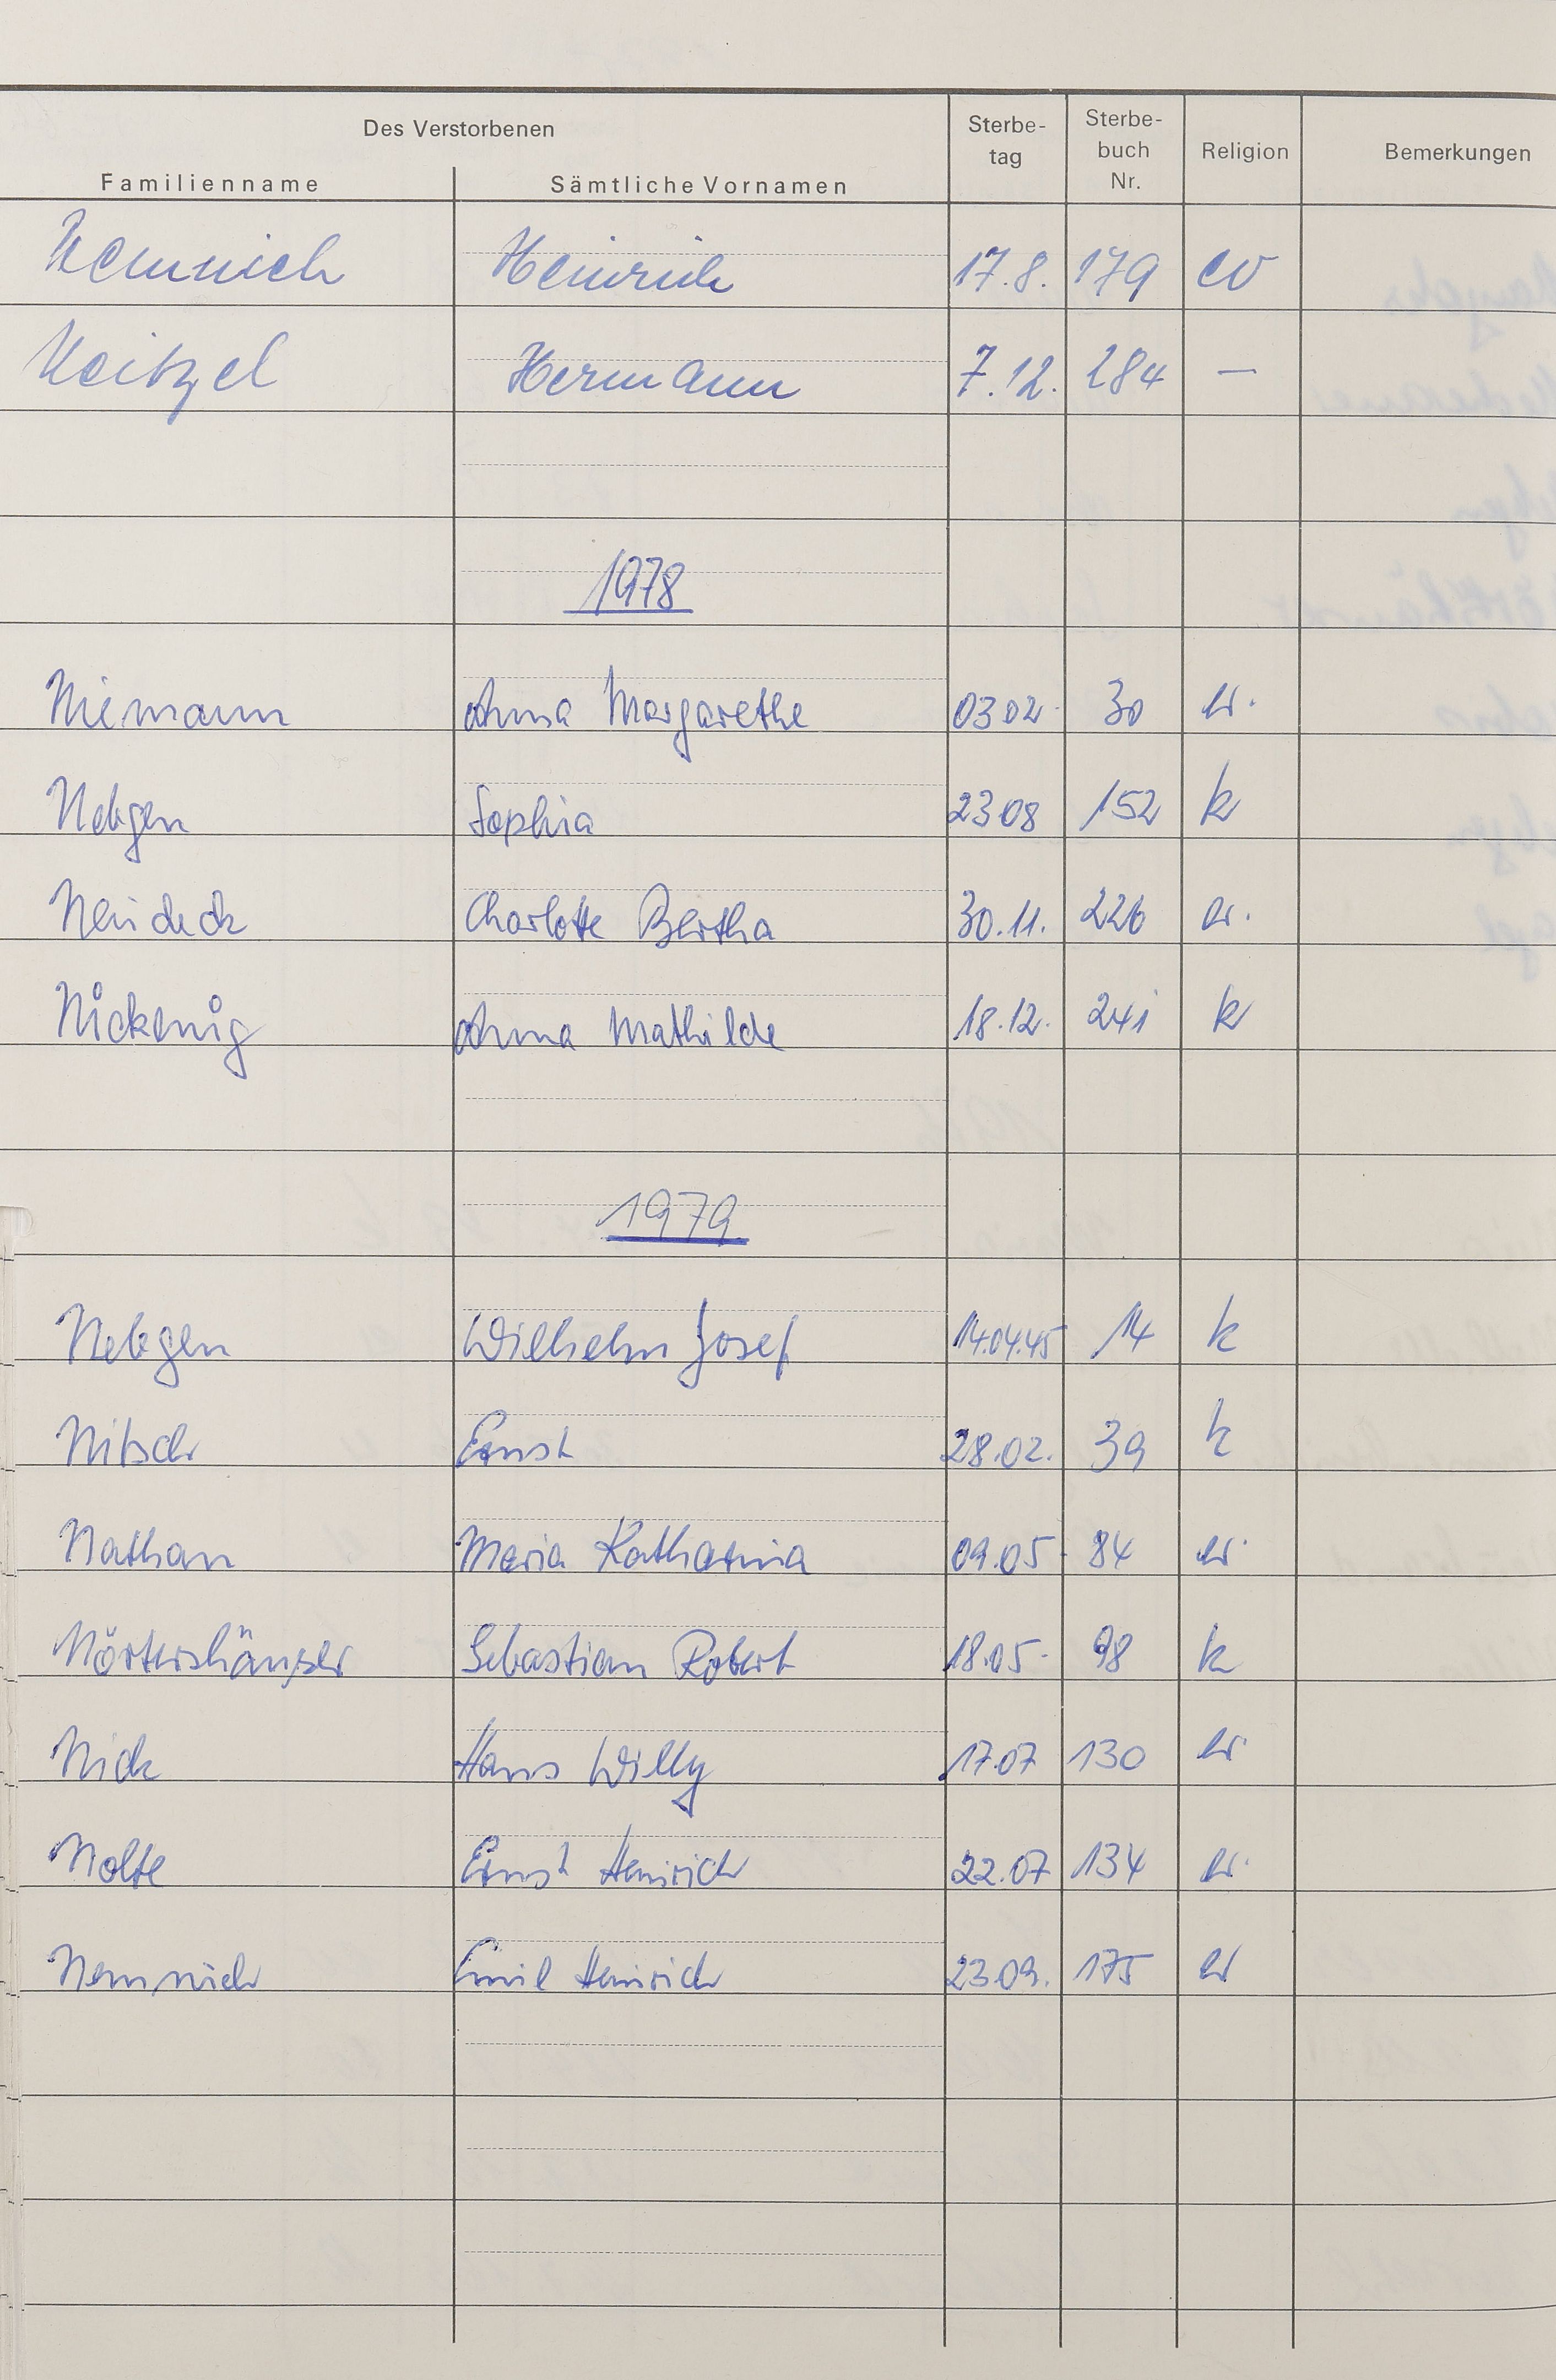 Des Verstorbenen
Familienname Sämtliche Vornamen Sterbe-tag Sterbe-buch Nr. Religion Bemerkungen
Nemnich Heinrich 17.8. 179 ev
Neitzel Hermann 7.12. 284 —
1978
Niemann Anna Margarethe 03 02. 30 ev.
Nebgen Sophia 23 08 152 k
Neideck Charlotte Bertha 30.11. 226 ev.
Nickenig Anna Mathilde 18.12. 241 k
1979
Nebgen Wilhelm Josef 14.04.45 14 k
Nitsch Ernst 28.02. 39 k
Nathan Maria Katharina 09.05. 84 ev.
Nörtershäuser Sebastian Robert 18.05. 98 k
Nick Hans Willy 17.07 130 ev.
Nolte Ernst Heinrich 22.07 134 ev.
Nemnich Emil Heinrich 23.09. 175 ev